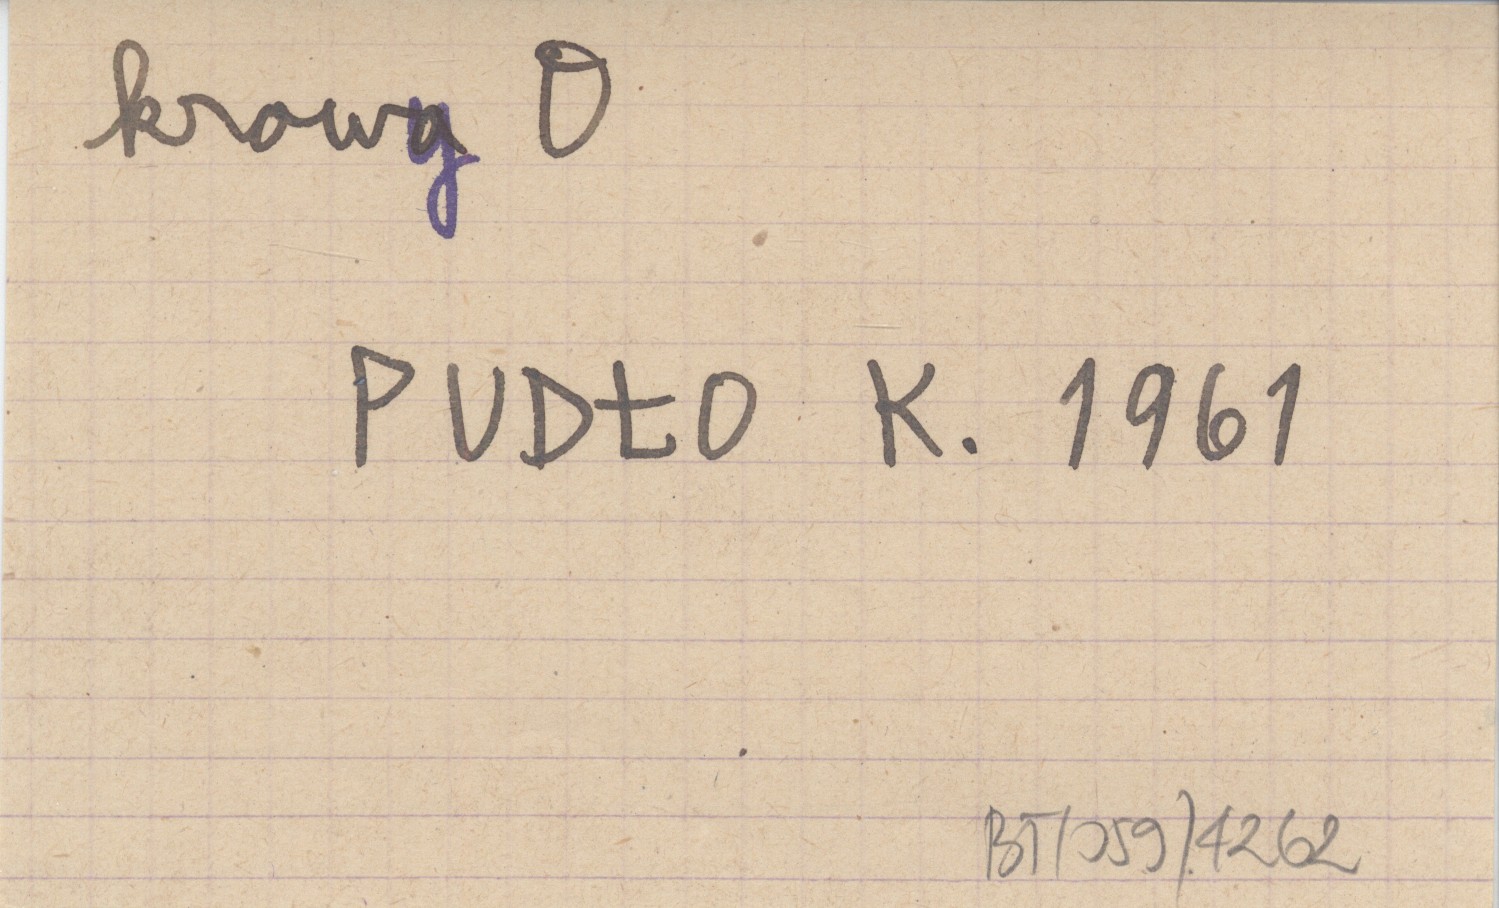 krowy O
PUDŁO K. 1961
BT/059/.4262